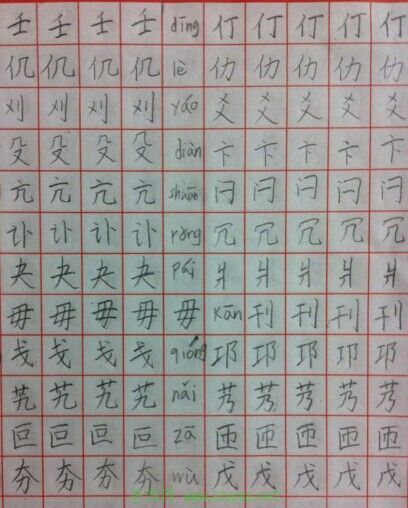 壬 壬 壬 壬 dīng 仃 仃 仃 仃 仃
仉 仉 仉 仉 lè 仂 仂 仂 仂 仂
刈 刈 刈 刈 yáo 爻 爻 爻 爻 爻
殳 殳 殳 殳 diàn 卞 卞 卞 卞 卞
亢 亢 亢 亢 shuān 闩 闩 闩 闩 闩
讣 讣 讣 讣 rǒng 冗 冗 冗 冗 冗
夬 夬 夬 夬 pái 爿 爿 爿 爿 爿
毋 毋 毋 毋 毋 kān 刊 刊 刊 刊
戋 戋 戋 戋 qióng 邛 邛 邛 邛 邛
艽 艽 艽 艽 nǎi 艿 艿 艿 艿 艿
叵 叵 叵 叵 zā 匝 匝 匝 匝 匝
夯 夯 夯 夯 wù 戊 戊 戊 戊 戊